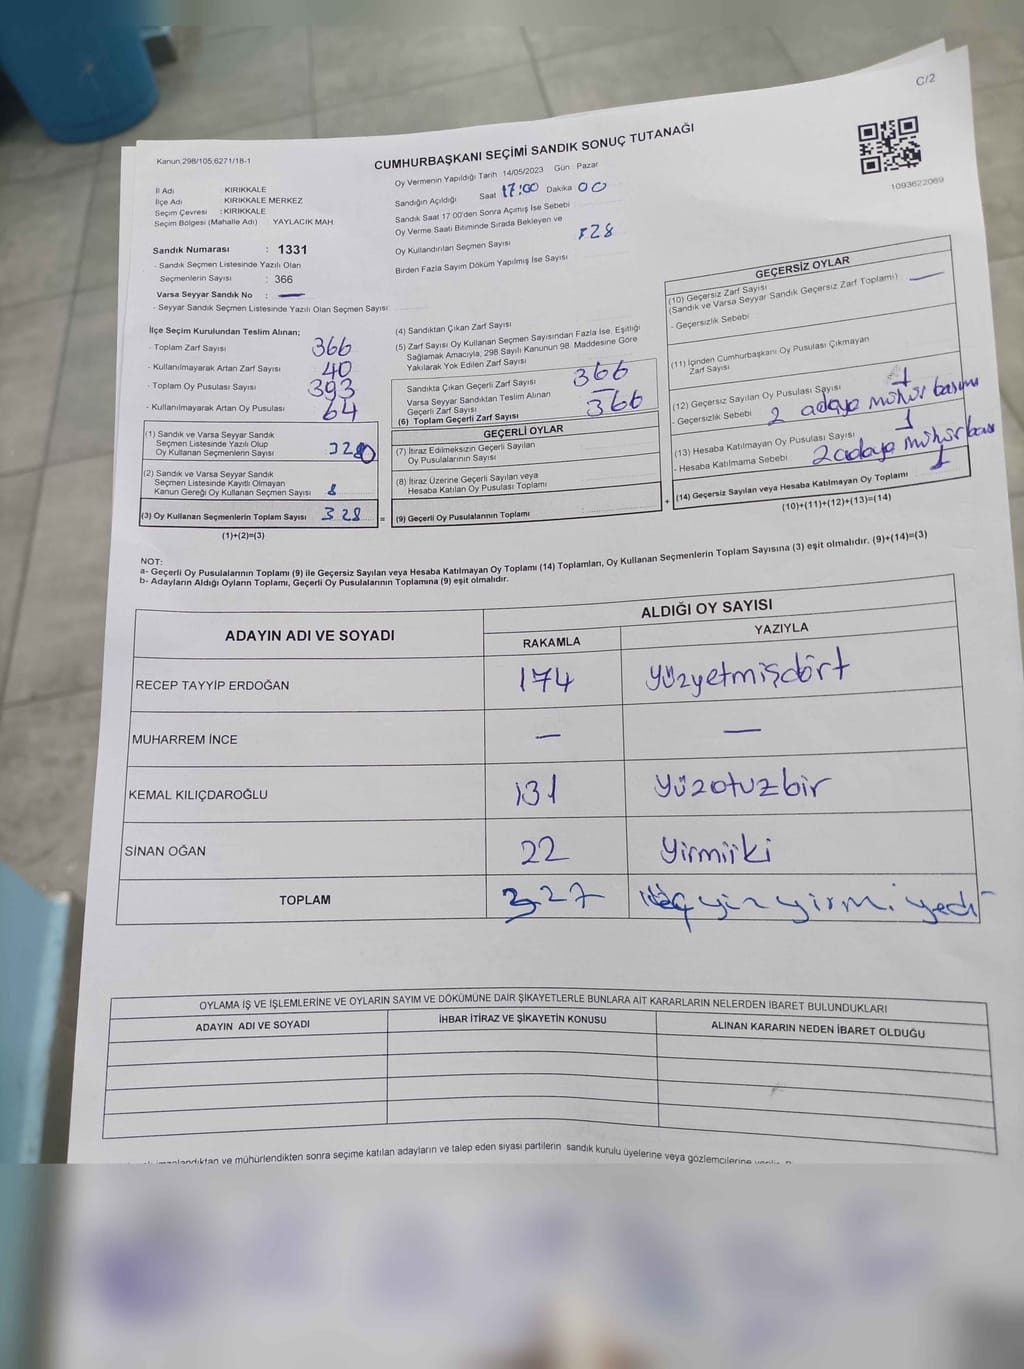 C/2
Kanun:298/105,6271/18-1
CUMHURBAŞKANI SEÇİMİ SANDIK SONUÇ TUTANAĞI
1093622069
İl Adı : KIRIKKALE
İlçe Adı : KIRIKKALE MERKEZ
Seçim Çevresi : KIRIKKALE
Seçim Bölgesi (Mahalle Adı) : YAYLACIK MAH.
Sandık Numarası : 1331
- Sandık Seçmen Listesinde Yazılı Olan
Seçmenlerin Sayısı : 366
Varsa Seyyar Sandık No : —
- Seyyar Sandık Seçmen Listesinde Yazılı Olan Seçmen Sayısı:
Oy Vermenin Yapıldığı Tarih : 14/05/2023 Gün : Pazar
Sandığın Açıldığı Saat 17:00 Dakika 00
Sandık Saat 17.00'den Sonra Açımış İse Sebebi
Oy Verme Saati Bitiminde Sırada Bekleyen ve
Oy Kullandırılan Seçmen Sayısı 328
Birden Fazla Sayım Döküm Yapılmış İse Sayısı
İlçe Seçim Kurulundan Teslim Alınan;
- Toplam Zarf Sayısı 366
- Kullanılmayarak Artan Zarf Sayısı 40
- Toplam Oy Pusulası Sayısı 393
- Kullanılmayarak Artan Oy Pusulası 64
(1) Sandık ve Varsa Seyyar Sandık
Seçmen Listesinde Yazılı Olup
Oy Kullanan Seçmenlerin Sayısı
(2) Sandık ve Varsa Seyyar Sandık
Seçmen Listesinde Kayıtlı Olmayan
Kanun Gereği Oy Kullanan Seçmen Sayısı 8
(3) Oy Kullanan Seçmenlerin Toplam Sayısı 328 =
(1)+(2)=(3)
(4) Sandıktan Çıkan Zarf Sayısı
(5) Zarf Sayısı Oy Kullanan Seçmen Sayısından Fazla İse, Eşitliği
Sağlamak Amacıyla, 298 Sayılı Kanunun 98. Maddesine Göre
Yakılarak Yok Edilen Zarf Sayısı
Sandıkta Çıkan Geçerli Zarf Sayısı 366
Varsa Seyyar Sandıktan Teslim Alınan
Geçerli Zarf Sayısı
(6) Toplam Geçerli Zarf Sayısı 366
GEÇERLİ OYLAR
(7) İtiraz Edilmeksizin Geçerli Sayılan
Oy Pusulalarının Sayısı
(8) İtiraz Üzerine Geçerli Sayılan veya
Hesaba Katılan Oy Pusulası Toplamı
(9) Geçerli Oy Pusulalarının Toplamı
+
GEÇERSİZ OYLAR
(10) Geçersiz Zarf Sayısı
(Sandık ve Varsa Seyyar Sandık Geçersiz Zarf Toplamı) —
- Geçersizlik Sebebi
(11) İçinden Cumhurbaşkanı Oy Pusulası Çıkmayan
Zarf Sayısı
(12) Geçersiz Sayılan Oy Pusulası Sayısı 1
- Geçersizlik Sebebi 2 adaya mühür basımı
(13) Hesaba Katılmayan Oy Pusulası Sayısı 1
- Hesaba Katılmama Sebebi 2 adaya mühür
(14) Geçersiz Sayılan veya Hesaba Katılmayan Oy Toplamı 1
(10)+(11)+(12)+(13)=(14)
NOT:
a- Geçerli Oy Pusulalarının Toplamı (9) ile Geçersiz Sayılan veya Hesaba Katılmayan Oy Toplamı (14) Toplamları, Oy Kullanan Seçmenlerin Toplam Sayısına (3) eşit olmalıdır. (9)+(14)=(3)
b- Adayların Aldığı Oyların Toplamı, Geçerli Oy Pusulalarının Toplamına (9) eşit olmalıdır.
ADAYIN ADI VE SOYADI
ALDIĞI OY SAYISI
RAKAMLA YAZIYLA
RECEP TAYYİP ERDOĞAN 174 yüzyetmişdört
MUHARREM İNCE — —
KEMAL KILIÇDAROĞLU 131 yüzotuzbir
SİNAN OĞAN 22 yirmiiki
TOPLAM 327 üçyüzyirmi yedi
OYLAMA İŞ VE İŞLEMLERİNE VE OYLARIN SAYIM VE DÖKÜMÜNE DAİR ŞİKAYETLERLE BUNLARA AİT KARARLARIN NELERDEN İBARET BULUNDUKLARI
ADAYIN ADI VE SOYADI İHBAR İTİRAZ VE ŞİKAYETİN KONUSU ALINAN KARARIN NEDEN İBARET OLDUĞU
ve mühürlendikten sonra seçime katılan adayların ve talep eden siyasi partilerin sandık kurulu üyelerine veya gözlemcilerine